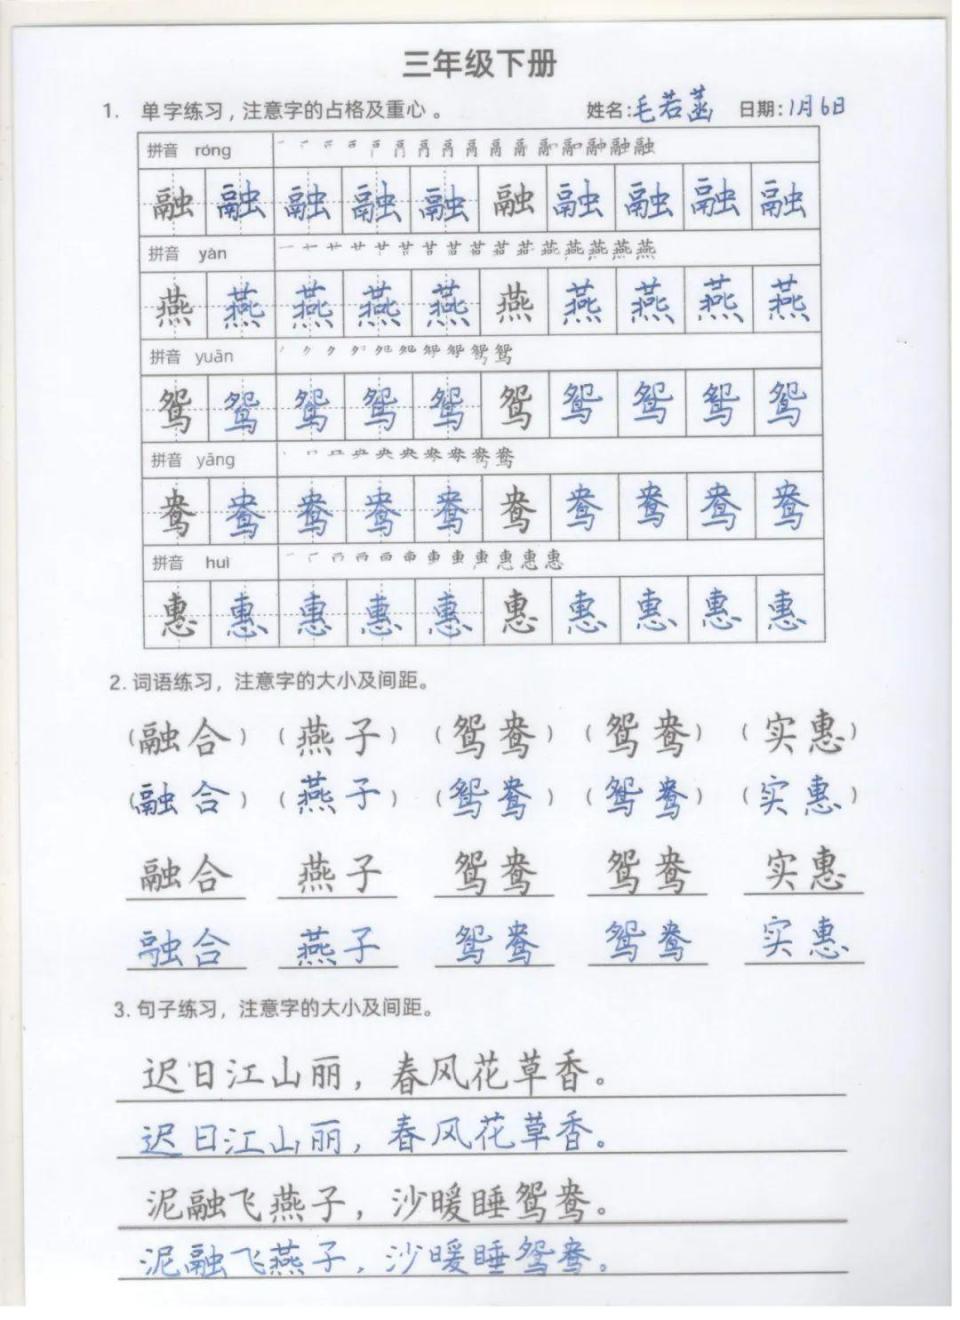 三年级下册
1. 单字练习，注意字的占格及重心。 姓名:毛若菡 日期:1月6日
拼音 róng
融 融 融 融 融 融 融 融 融 融
拼音 yàn
燕 燕 燕 燕 燕 燕 燕 燕 燕 燕
拼音 yuān
鸳 鸳 鸳 鸳 鸳 鸳 鸳 鸳 鸳 鸳
拼音 yāng
鸯 鸯 鸯 鸯 鸯 鸯 鸯 鸯 鸯 鸯
拼音 huì
惠 惠 惠 惠 惠 惠 惠 惠 惠 惠
2. 词语练习，注意字的大小及间距。
(融合) (燕子) (鸳鸯) (鸳鸯) (实惠)
(融合) (燕子) (鸳鸯) (鸳鸯) (实惠)
融合 燕子 鸳鸯 鸳鸯 实惠
融合 燕子 鸳鸯 鸳鸯 实惠
3. 句子练习，注意字的大小及间距。
迟日江山丽，春风花草香。
迟日江山丽，春风花草香。
泥融飞燕子，沙暖睡鸳鸯。
泥融飞燕子，沙暖睡鸳鸯。